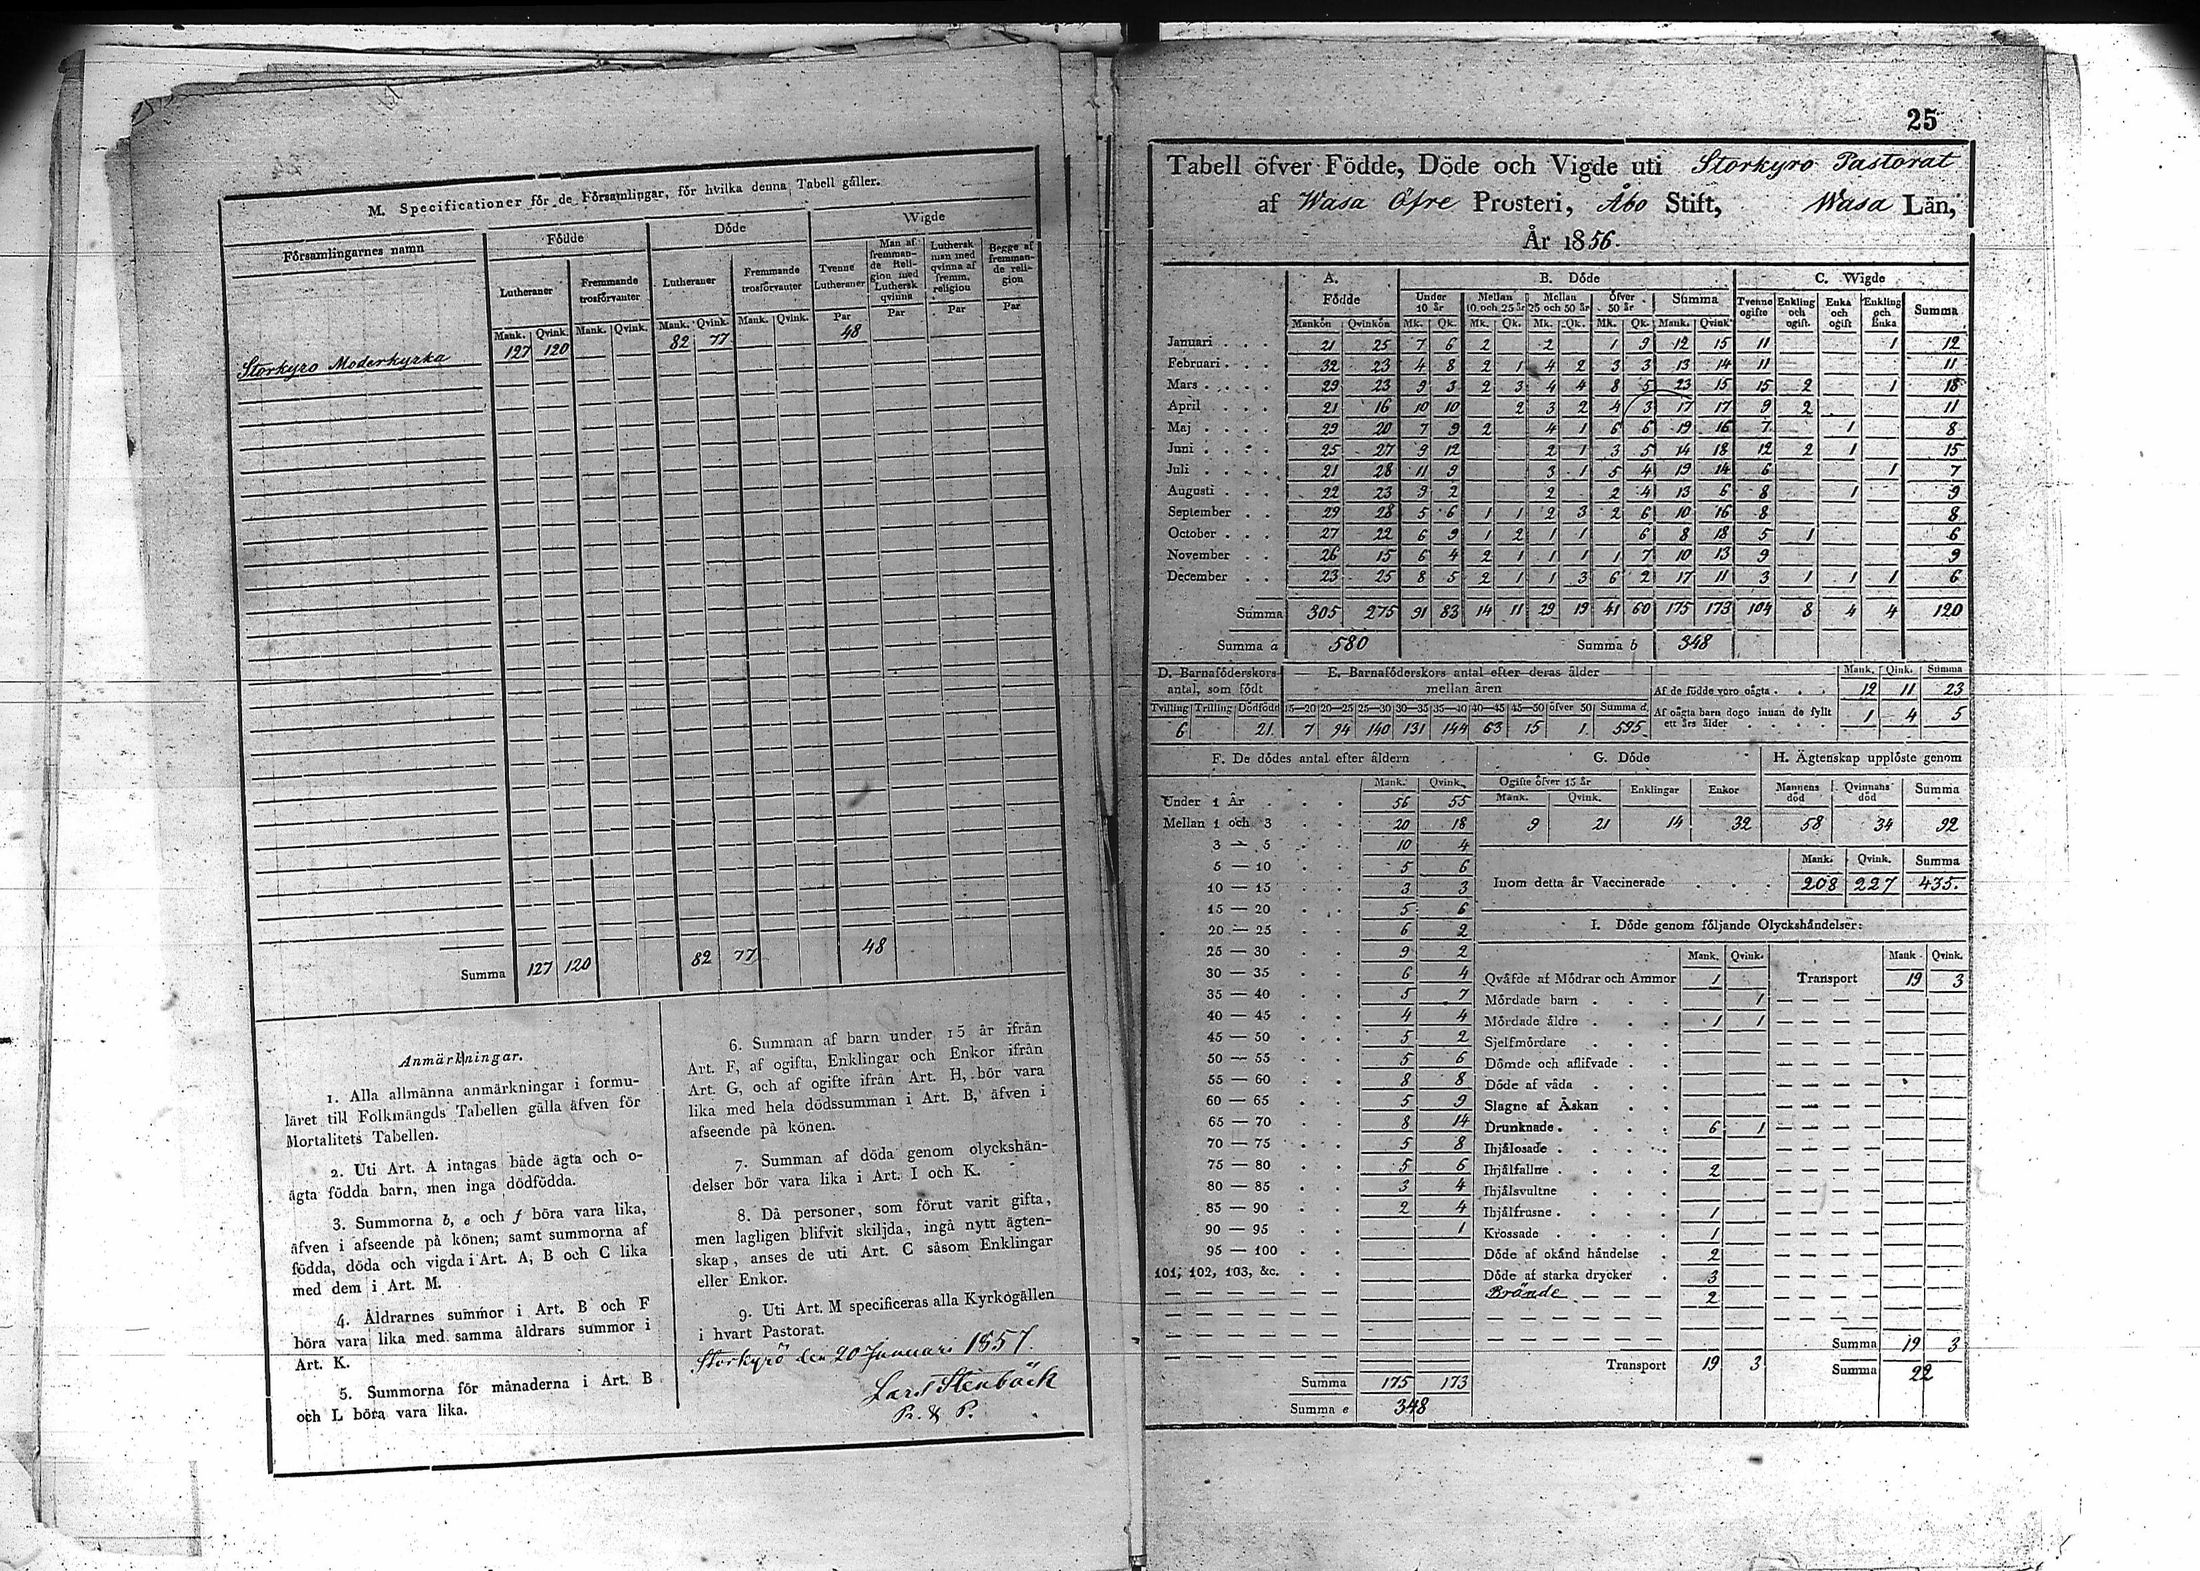 M. Specificationer för de Församlingar, för hvilka denna Tabell gäller.
Församlingarnes namn Födde Döde Wigde
Lutheraner Fremmande trosförvanter Lutheraner Fremmande trosförvanter Tvenne Lutheraner Man af fremmande Religion med Luthersk qvinna Luthersk man med qvinna af fremm. religion Begge af fremmande religion
Mank. Qvink. Mank. Qvink. Mank. Qvink. Mank. Qvink. Par Par Par Par
Storkyro Moderkyrka 127 120 82 77 48
Summa 127 120 82 77 48
Anmärkningar.
1. Alla allmänna anmärkningar i formu-
läret till Folkmängds Tabellen gälla äfven för
Mortalitets Tabellen.
2. Uti Art. A intagas både ägta och o-
ägta födda barn, men inga dödfödda.
3. Summorna b, e och f böra vara lika,
äfven i afseende på könen; samt summorna af
födda, döda och vigda i Art. A, B och C lika
med dem i Art. M.
4. Åldrarnes summor i Art. B och F
böra vara lika med samma åldrars summor i
Art. K.
5. Summorna för månaderna i Art. B
och L böra vara lika.
6. Summan af barn under 15 år ifrån
Art. F, af ogifta, Enklingar och Enkor ifrån
Art. G, och af ogifte ifrån Art. H, bör vara
lika med hela dödssumman i Art. B, äfven i
afseende på könen.
7. Summan af döda genom olyckshän-
delser bör vara lika i Art. I och K.
8. Då personer, som förut varit gifta,
men lagligen blifvit skiljda, ingå nytt ägten-
skap, anses de uti Art. C såsom Enklingar
eller Enkor.
9. Uti Art. M specificeras alla Kyrkogällen
i hvart Pastorat.
Storkyrö den 20 Januari 1857.
Lars Stenbäck
Pr. & P.
25
Tabell öfver Födde, Döde och Vigde uti Storkyro Pastorat
af Wasa Öfre Prosteri, Åbo Stift, Wasa Län,
År 1856.
A. Födde B. Döde C. Wigde
Mankön Qvinkön Under 10 år Mellan 10 och 25 år Mellan 25 och 50 år Öfver 50 år Summa Tvenne ogifte Enkling och ogift. Enka och ogift Enkling och Enka Summa
Mk. Qk. Mk. Qk. Mk. Qk. Mk. Qk. Mank. Qvink
Januari 21 25 7 6 2 2 1 9 12 15 11 1 12
Februari 32 23 4 8 2 1 4 2 3 3 13 14 11 11
Mars 29 23 9 3 2 3 4 4 8 5 23 15 15 2 1 18
April 21 16 10 10 2 3 2 4 3 17 17 9 2 11
Maj 29 20 7 9 2 4 1 6 6 19 16 7 1 8
Juni 25 27 9 12 2 1 3 5 14 18 12 2 1 15
Juli 21 28 11 9 3 1 5 4 19 14 6 1 7
Augusti 22 23 9 2 2 2 4 13 6 8 1 9
September 29 28 5 6 1 1 2 3 2 6 10 16 8 8
October 27 22 6 9 1 2 1 1 6 8 18 5 1 6
November 26 15 6 4 2 1 1 1 1 7 10 13 9 9
December 23 25 8 5 2 1 1 3 6 2 17 11 3 1 1 1 6
Summa 305 275 91 83 14 11 29 19 41 60 175 173 104 8 4 4 120
Summa a 580 Summa b 348
D. Barnaföderskors antal, som födt
Tvilling Trilling Dödfödd
6 21
E. Barnaföderskors antal efter deras ålder mellan åren
15—20 20—25 25—30 30—35 35—40 40—45 45—50 öfver 50 Summa d.
7 94 140 131 144 63 15 1 595
Mank. Qink. Summa
Af de födde voro oägta 12 11 23
Af oägta barn dogo innan de fyllt ett års ålder 1 4 5
F. De dödes antal efter åldern
Mank. Qvink.
Under 1 År 56 55
Mellan 1 och 3 20 18
3 — 5 10 4
5 — 10 5 6
10 — 15 3 3
15 — 20 5 6
20 — 25 6 2
25 — 30 9 2
30 — 35 6 4
35 — 40 5 7
40 — 45 4 4
45 — 50 5 2
50 — 55 5 6
55 — 60 8 8
60 — 65 5 9
65 — 70 8 14
70 — 75 5 8
75 — 80 5 6
80 — 85 3 4
85 — 90 2 4
90 — 95 1
95 — 100
101, 102, 103, &c.
Summa 175 173
Summa e 348
G. Döde
Ogifte öfver 15 år Enklingar Enkor
Mank. Qvink.
9 21 14 32
H. Ägtenskap upplöste genom
Mannens död Qvinnans död Summa
58 34 92
Mank. Qvink. Summa
Inom detta år Vaccinerade 208 227 435.
I. Döde genom följande Olyckshändelser:
Mank. Qvink. Mank. Qvink.
Qväfde af Mödrar och Ammor 1 Transport 19 3
Mördade barn 1
Mördade äldre 1 1
Sjelfmördare
Dömde och aflifvade
Döde af våda
Slagne af Åskan
Drunknade 6 1
Ihjälosade
Ihjälfallne 2
Ihjälsvultne
Ihjälfrusne 1
Krossade 1
Döde af okänd händelse 2
Döde af starka drycker 3
Brände 2
Summa 19 3
Transport 19 3
Summa 22